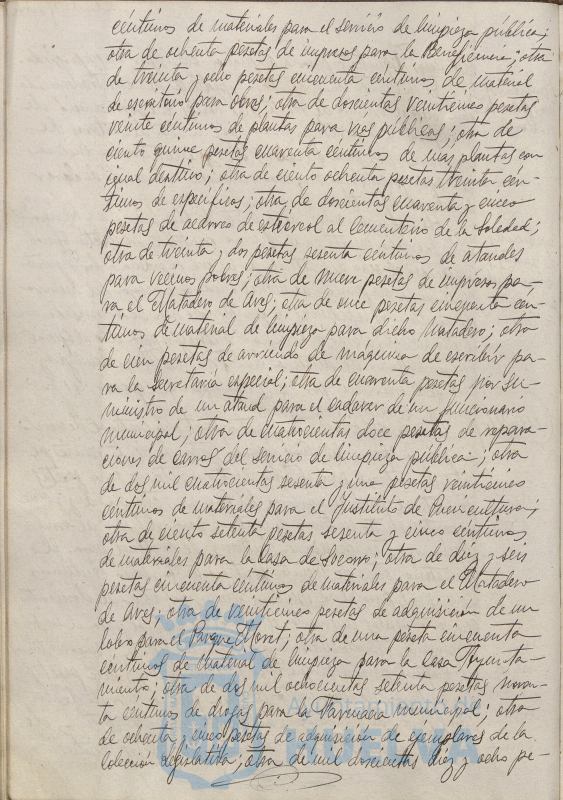 céntimos de materiales para el servicio de limpieza pública;
otra de ochenta pesetas de impresos para la Beneficencia; otra
de treinta y ocho pesetas cincuenta céntimos de material
de escritorio para obras; otra de doscientas veinticinco pesetas
veinte céntimos de plantas para vías públicas; otra de
ciento quince pesetas cuarenta céntimos de más plantas con
igual destino; otra de ciento ochenta pesetas treinta cén-
timos de específicos; otra de doscientas cuarenta y cinco
pesetas de acarreo de estiércol al Cementerio de la Soledad;
otra de treinta y dos pesetas sesenta céntimos de ataudes
para vecinos pobres; otra de nueve pesetas de impresos pa-
ra el Matadero de Aves; otra de once pesetas cincuenta cen-
timos de material de limpieza para dicho Matadero; otra
de cien pesetas de arriendo de máquina de escribir pa-
ra la Secretaría especial; otra de cuarenta pesetas por su-
ministro de un ataud para el cadaver de un funcionario
municipal; otra de cuatrocientas doce pesetas de repara-
ciones de carros del servicio de limpieza pública; otra
de dos mil cuatrocientas sesenta y una pesetas veinticinco
céntimos de materiales para el Instituto de Puericultura;
otra de ciento setenta pesetas sesenta y cinco céntimos
de materiales para la Casa de Socorro; otra de diez y seis
pesetas cincuenta céntimos de materiales para el Matadero
de Aves; otra de veinticinco pesetas de adquisición de un
lobo para el Parque Moret; otra de una peseta cincuenta
centimos de material de limpieza para la Casa Ayunta-
miento; otra de dos mil ochocientas setenta pesetas noven-
ta centimos de drogas para la Farmacia municipal; otra
de ochenta y cinco pesetas de adquisición de ejemplares de la
Colección Legislativa; otra de mil doscientas diez y ocho pe-
Ayuntamiento de
HUELVA